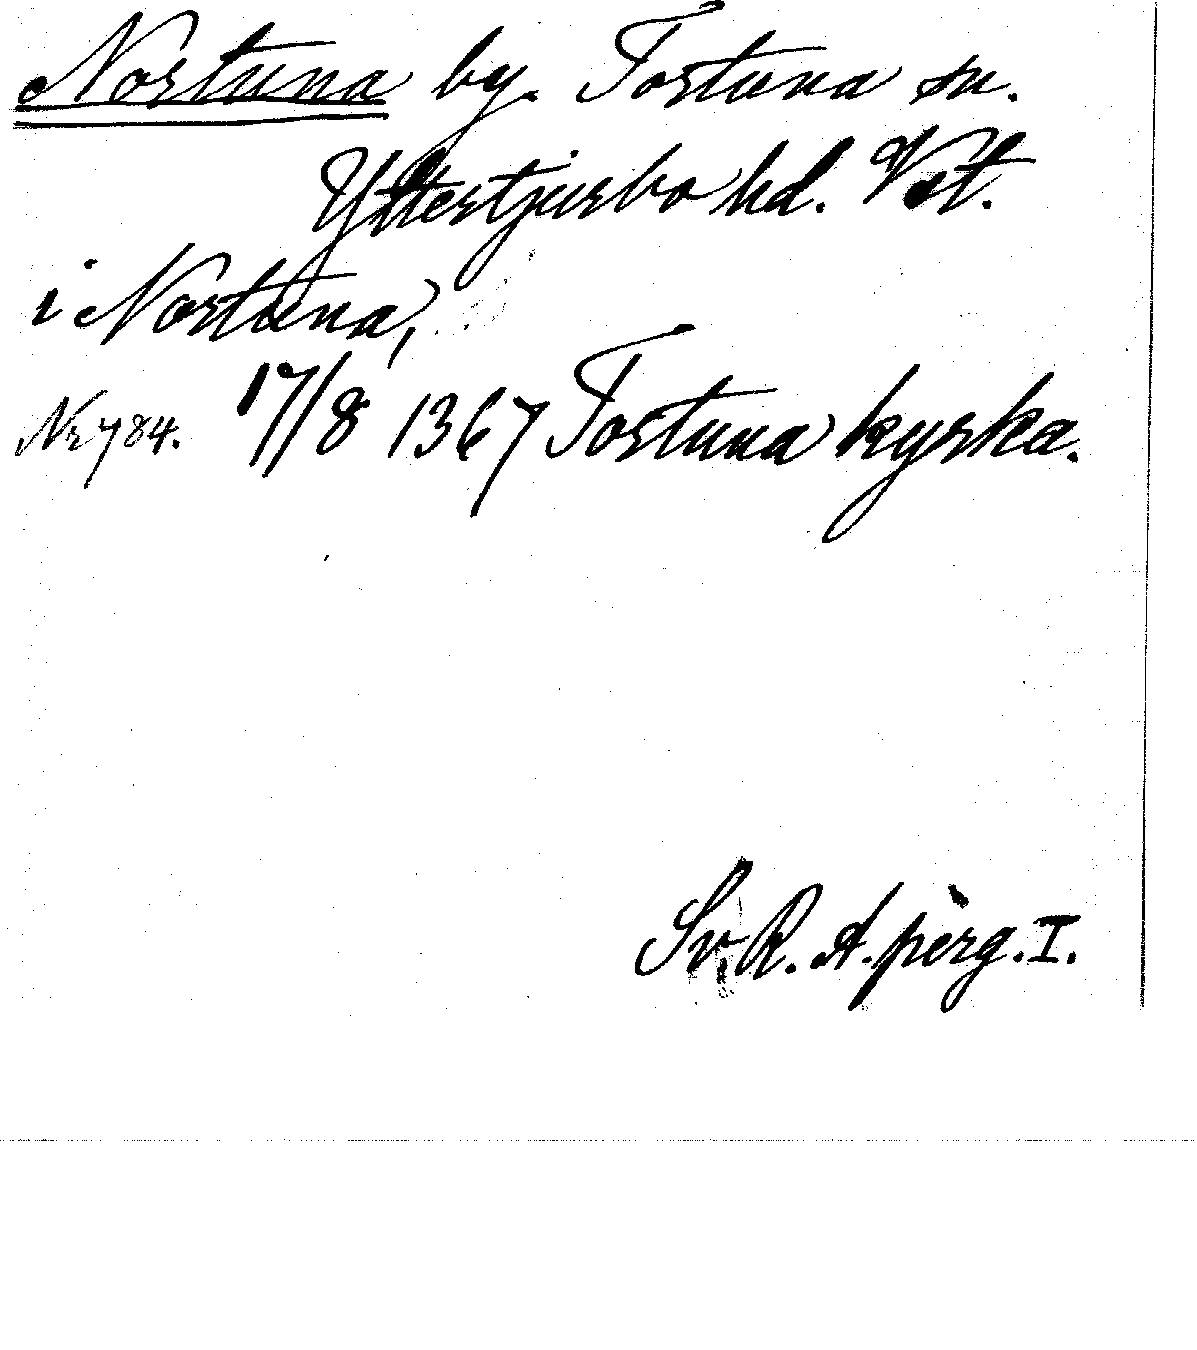 Nortuna by. Tortuna sn.
Yttertjurbo hd. Vst.
i Nortuna,
Nr 784. 17/8 1367 Tortuna kyrka.
Sv. R. A. perg. I.